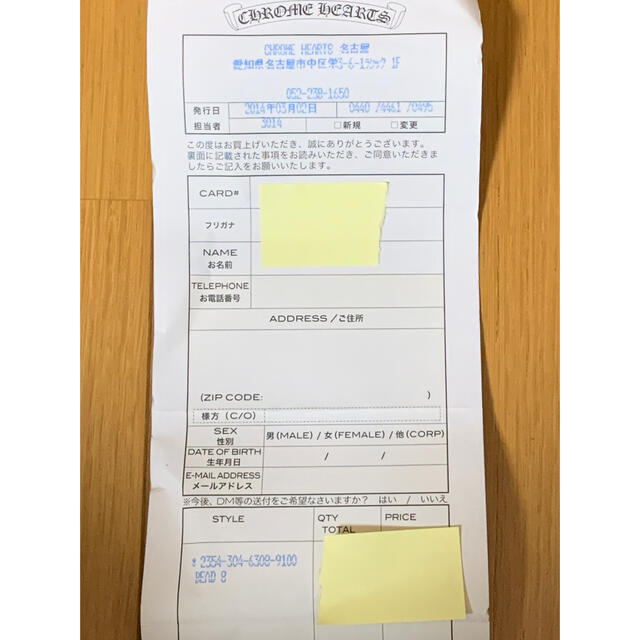 CHROME HEARTS
CHROME HEARTS 名古屋
愛知県名古屋市中区栄3-6-1ラシック 1F
052-238-1650
発行日 2014年03月02日 0440 /4461 /0495
担当者 3014 □新規 □変更
この度はお買上げいただき、誠にありがとうございます。
裏面に記載された事項をお読みいただき、ご同意いただきま
したらご記入をお願いいたします。
CARD#
フリガナ
NAME
お名前
TELEPHONE
お電話番号
ADDRESS /ご住所
(ZIP CODE: )
様方 (C/O)
SEX
性別
男(MALE) / 女(FEMALE) / 他(CORP)
DATE OF BIRTH
生年月日
/ /
E-MAIL ADDRESS
メールアドレス
※今後、DM等の送付をご希望なさいますか? はい / いいえ
STYLE QTY PRICE
TOTAL
* 2354-304-6308-9100
BEAD 8